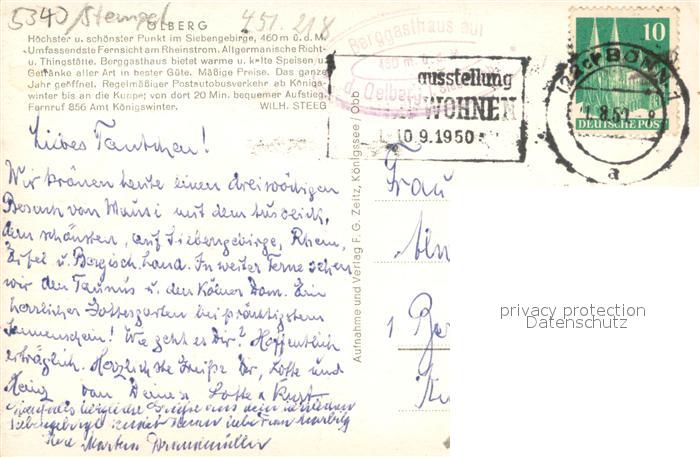 5340/Stempel
451.218
ÖLBERG
Höchster u. schönster Punkt im Siebengebirge, 460 m ü. d. M.
Umfassendste Fernsicht am Rheinstrom. Altgermanische Richt-
u. Thingstätte. Berggasthaus bietet warme u. kalte Speisen u.
Getränke aller Art in bester Güte. Mäßige Preise. Das ganze
Jahr geöffnet. Regelmäßiger Postautobusverkehr ab Königs-
winter bis an die Kuppe; von dort 20 Min. bequemer Aufstieg.
Fernruf 856 Amt Königswinter. WILH. STEEG
Berggasthaus auf
d. Oelberg
ausstellung
WOHNEN
10.9.1950
BONN 1
a
10
DEUTSCHE POST
Liebes Tantchen!
Wir krönen heute einen dreiwöchigen
Besuch von Mausi mit dem Ausblick,
dem schönsten, auf Siebengebirge, Rhein,
Eifel u. Bergisch. Land. In weiter Ferne sehen
wir den Taunus u. den Kölner Dom. Ein
herrlicher Gottesgarten bei prächtigstem
Sonnenschein! Wie geht es Dir? Hoffentlich
erträglich. Herzlichste Grüße Dir, Lotte und
Heinz von Deinen Lotte u. Kurt
herzliche Grüße aus dem
Siebengebirge
Ihre Martha
Aufnahme und Verlag F. G. Zeitz, Königssee / Obb
Frau
1
privacy protection
Datenschutz